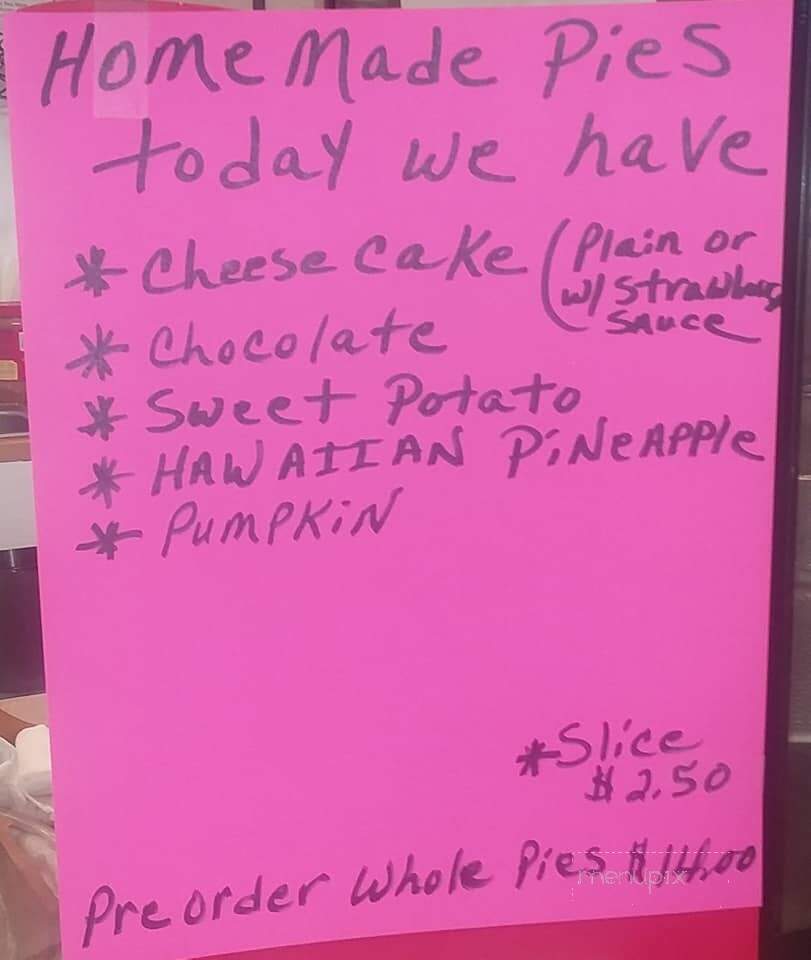 HomeMade Pies
today we have
* Cheese Cake (Plain or
w/ Strawberry
Sauce
* Chocolate
* Sweet Potato
* HAWAIIAN PiNeAPPle
* PUMPKiN
*Slice
$2.50
Preorder Whole Pies $14.00
menupix